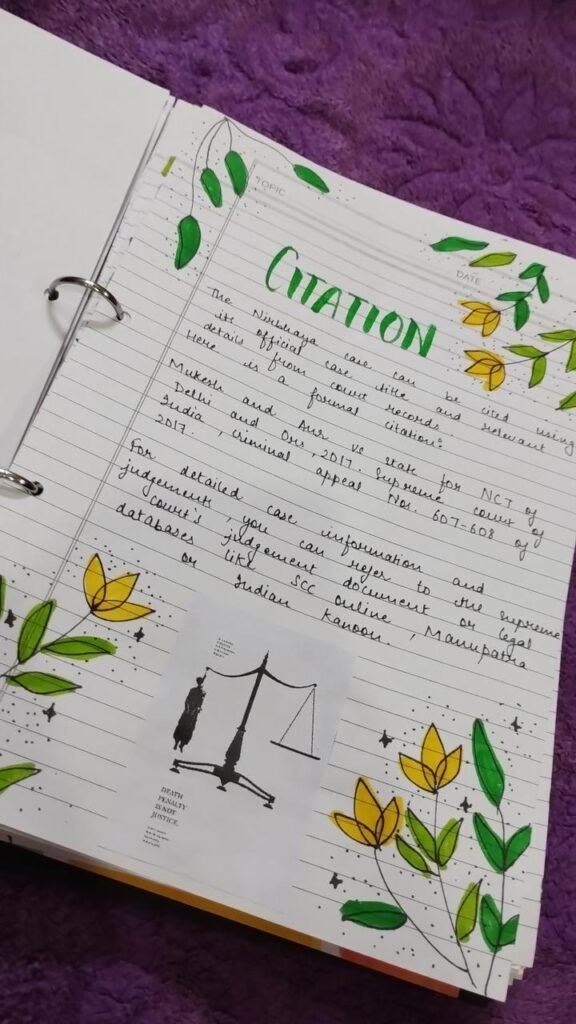 TOPIC
DATE
CITATION
The Nirbhaya case can be cited using
its official case title and relevant
details from court records.
Here is a formal citation:
Mukesh and Anr vs State for NCT of
Delhi and Ors, 2017. Supreme court of
India, criminal appeal Nos. 607-608 of
2017.
For detailed case information and
judgements, you can refer to the supreme
court's judgement document or legal
databases like SCC Online, Manupatra
or Indian Kanoon.
DEATH
PENALTY
IS NOT
JUSTICE.